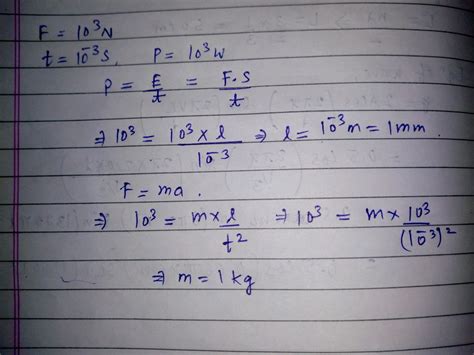 F = 10³N
t = 10̄³S, P = 10³W
P = E/t = F·S/t
⇒ 10³ = 10³ × l / 10̄³ ⇒ l = 10̄³m = 1mm.
F = ma.
⇒ 10³ = m × l/t² ⇒ 10³ = m × 10³/(10̄³)²
⇒ m = 1 kg